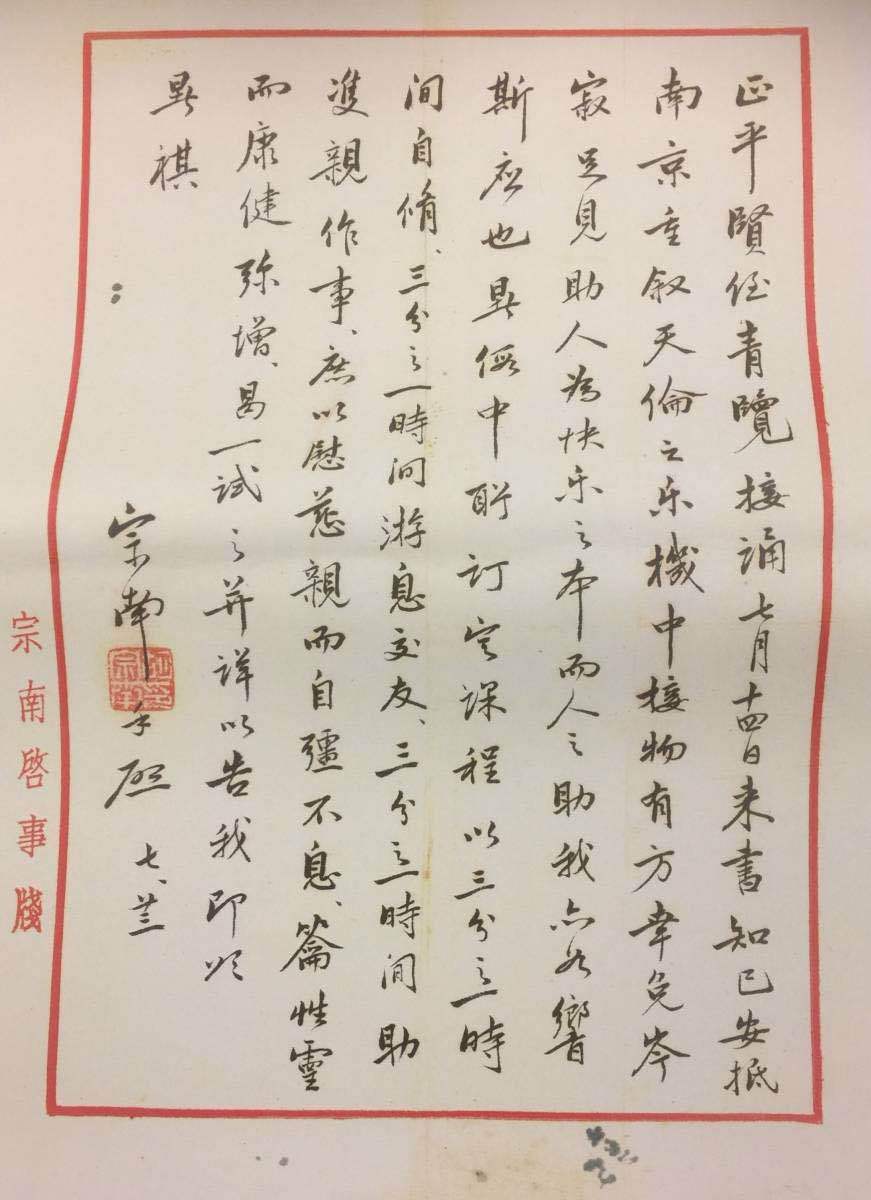 正平賢侄青覽接誦七月十四日来書知已安抵
南京重叙天倫之乐機中接物有方幸免岑
寂足見助人為快乐之本而人之助我亦如響
斯应也暑假中所訂定課程以三分之一時
间自脩、三分之一時间游息交友、三分之一時间助
雙親作事、庶以慰慈親而自彊不息、瀹性靈
而康健弥增、曷一試之并詳以告我即頌
暑祺
宗南手啟 七、廿三
宗南啓事牋